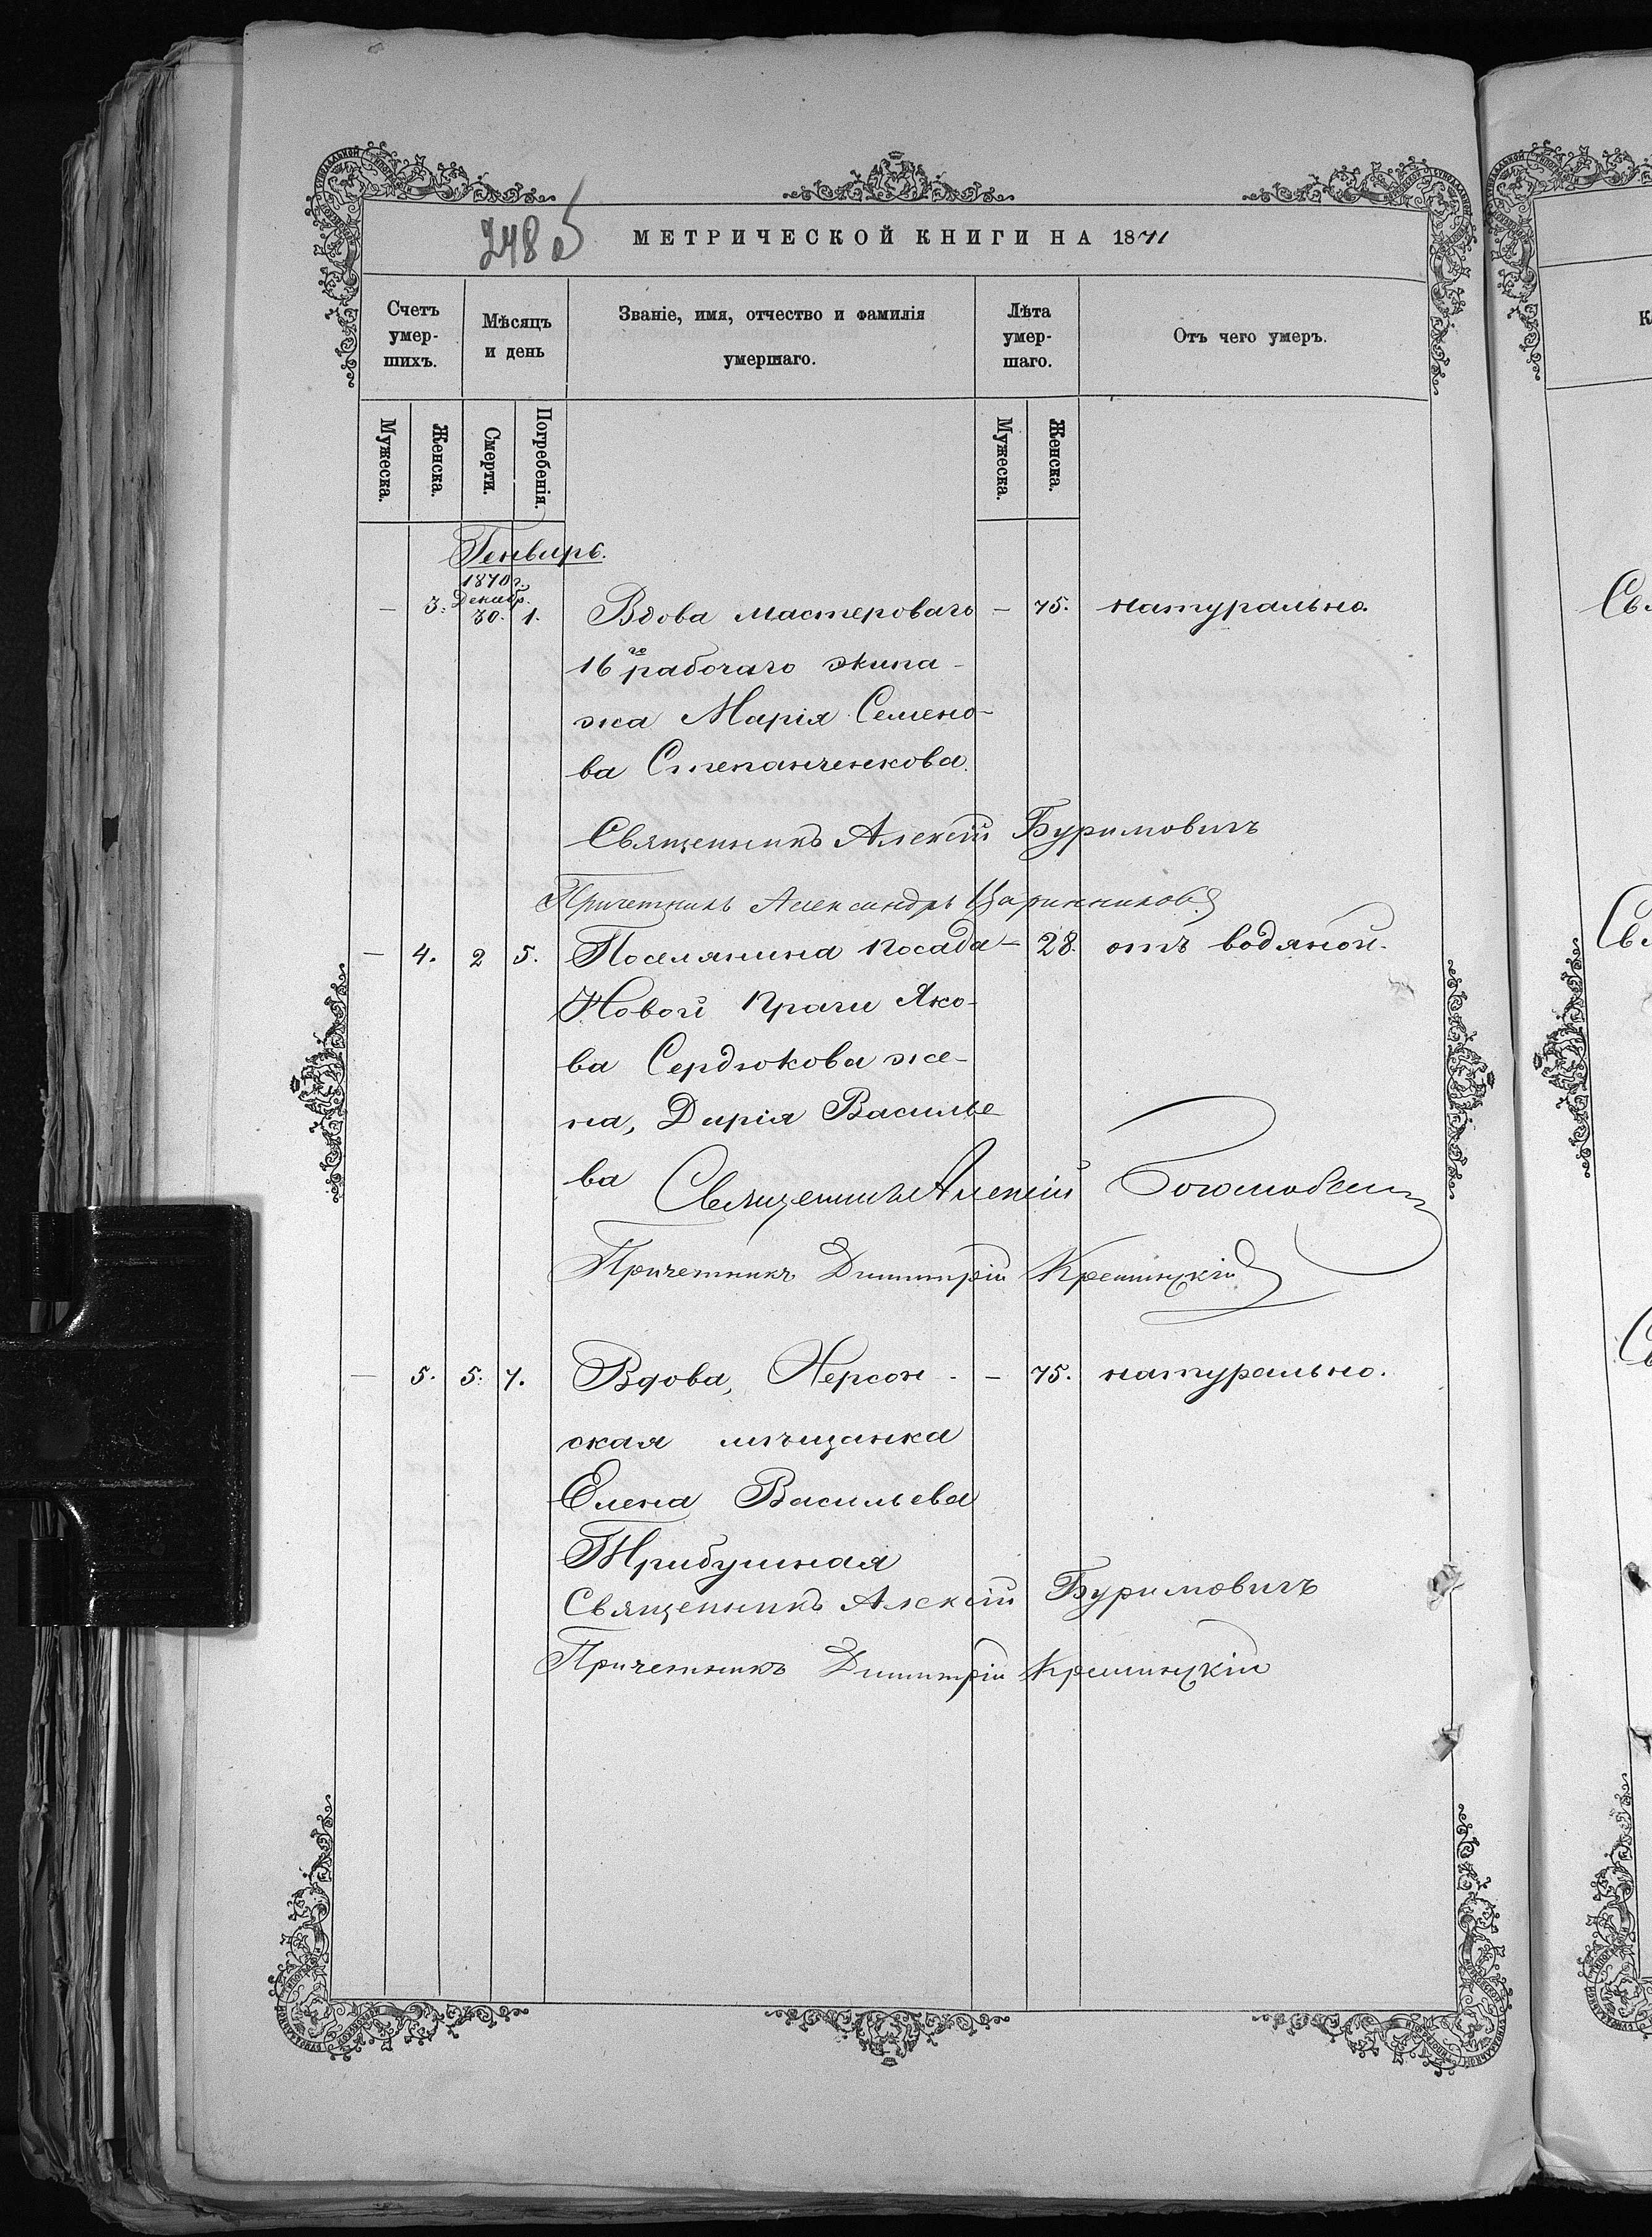 248 об
МЕТРИЧЕСКОЙ КНИГИ НА 1871
Счетъ умер- шихъ.
Мѣсяцъ и день
Званіе, имя, отчество и фамилія умершаго.
Лѣта умер- шаго.
Отъ чего умеръ.
Мужеска.
Женска.
Смерти.
Погребенія.
Мужеска.
Женска.
Генварь.
1870 г.
Декабр.
— 3. 30. 1. Вдова мастероваго — 75. натурально.
16го рабочаго экипа-
жа Марія Семено-
ва Степанченкова.
Священникъ Алексій Буримовичъ
Причетникъ Александръ Царинниковъ
— 4. 2 5. Поселянина посада — 28. отъ водяной.
Новой Праги Яко-
ва Сердюкова же-
на, Дарія Василье
ва
Священникъ Алексій
Причетникъ Димитрій
— 5. 5. 7. Вдова, Херсон- — 75. натурально.
ская мѣщанка
Елена Васильева
Трибушная
Священникъ Алексій Буримовичъ
Причетникъ Димитрій